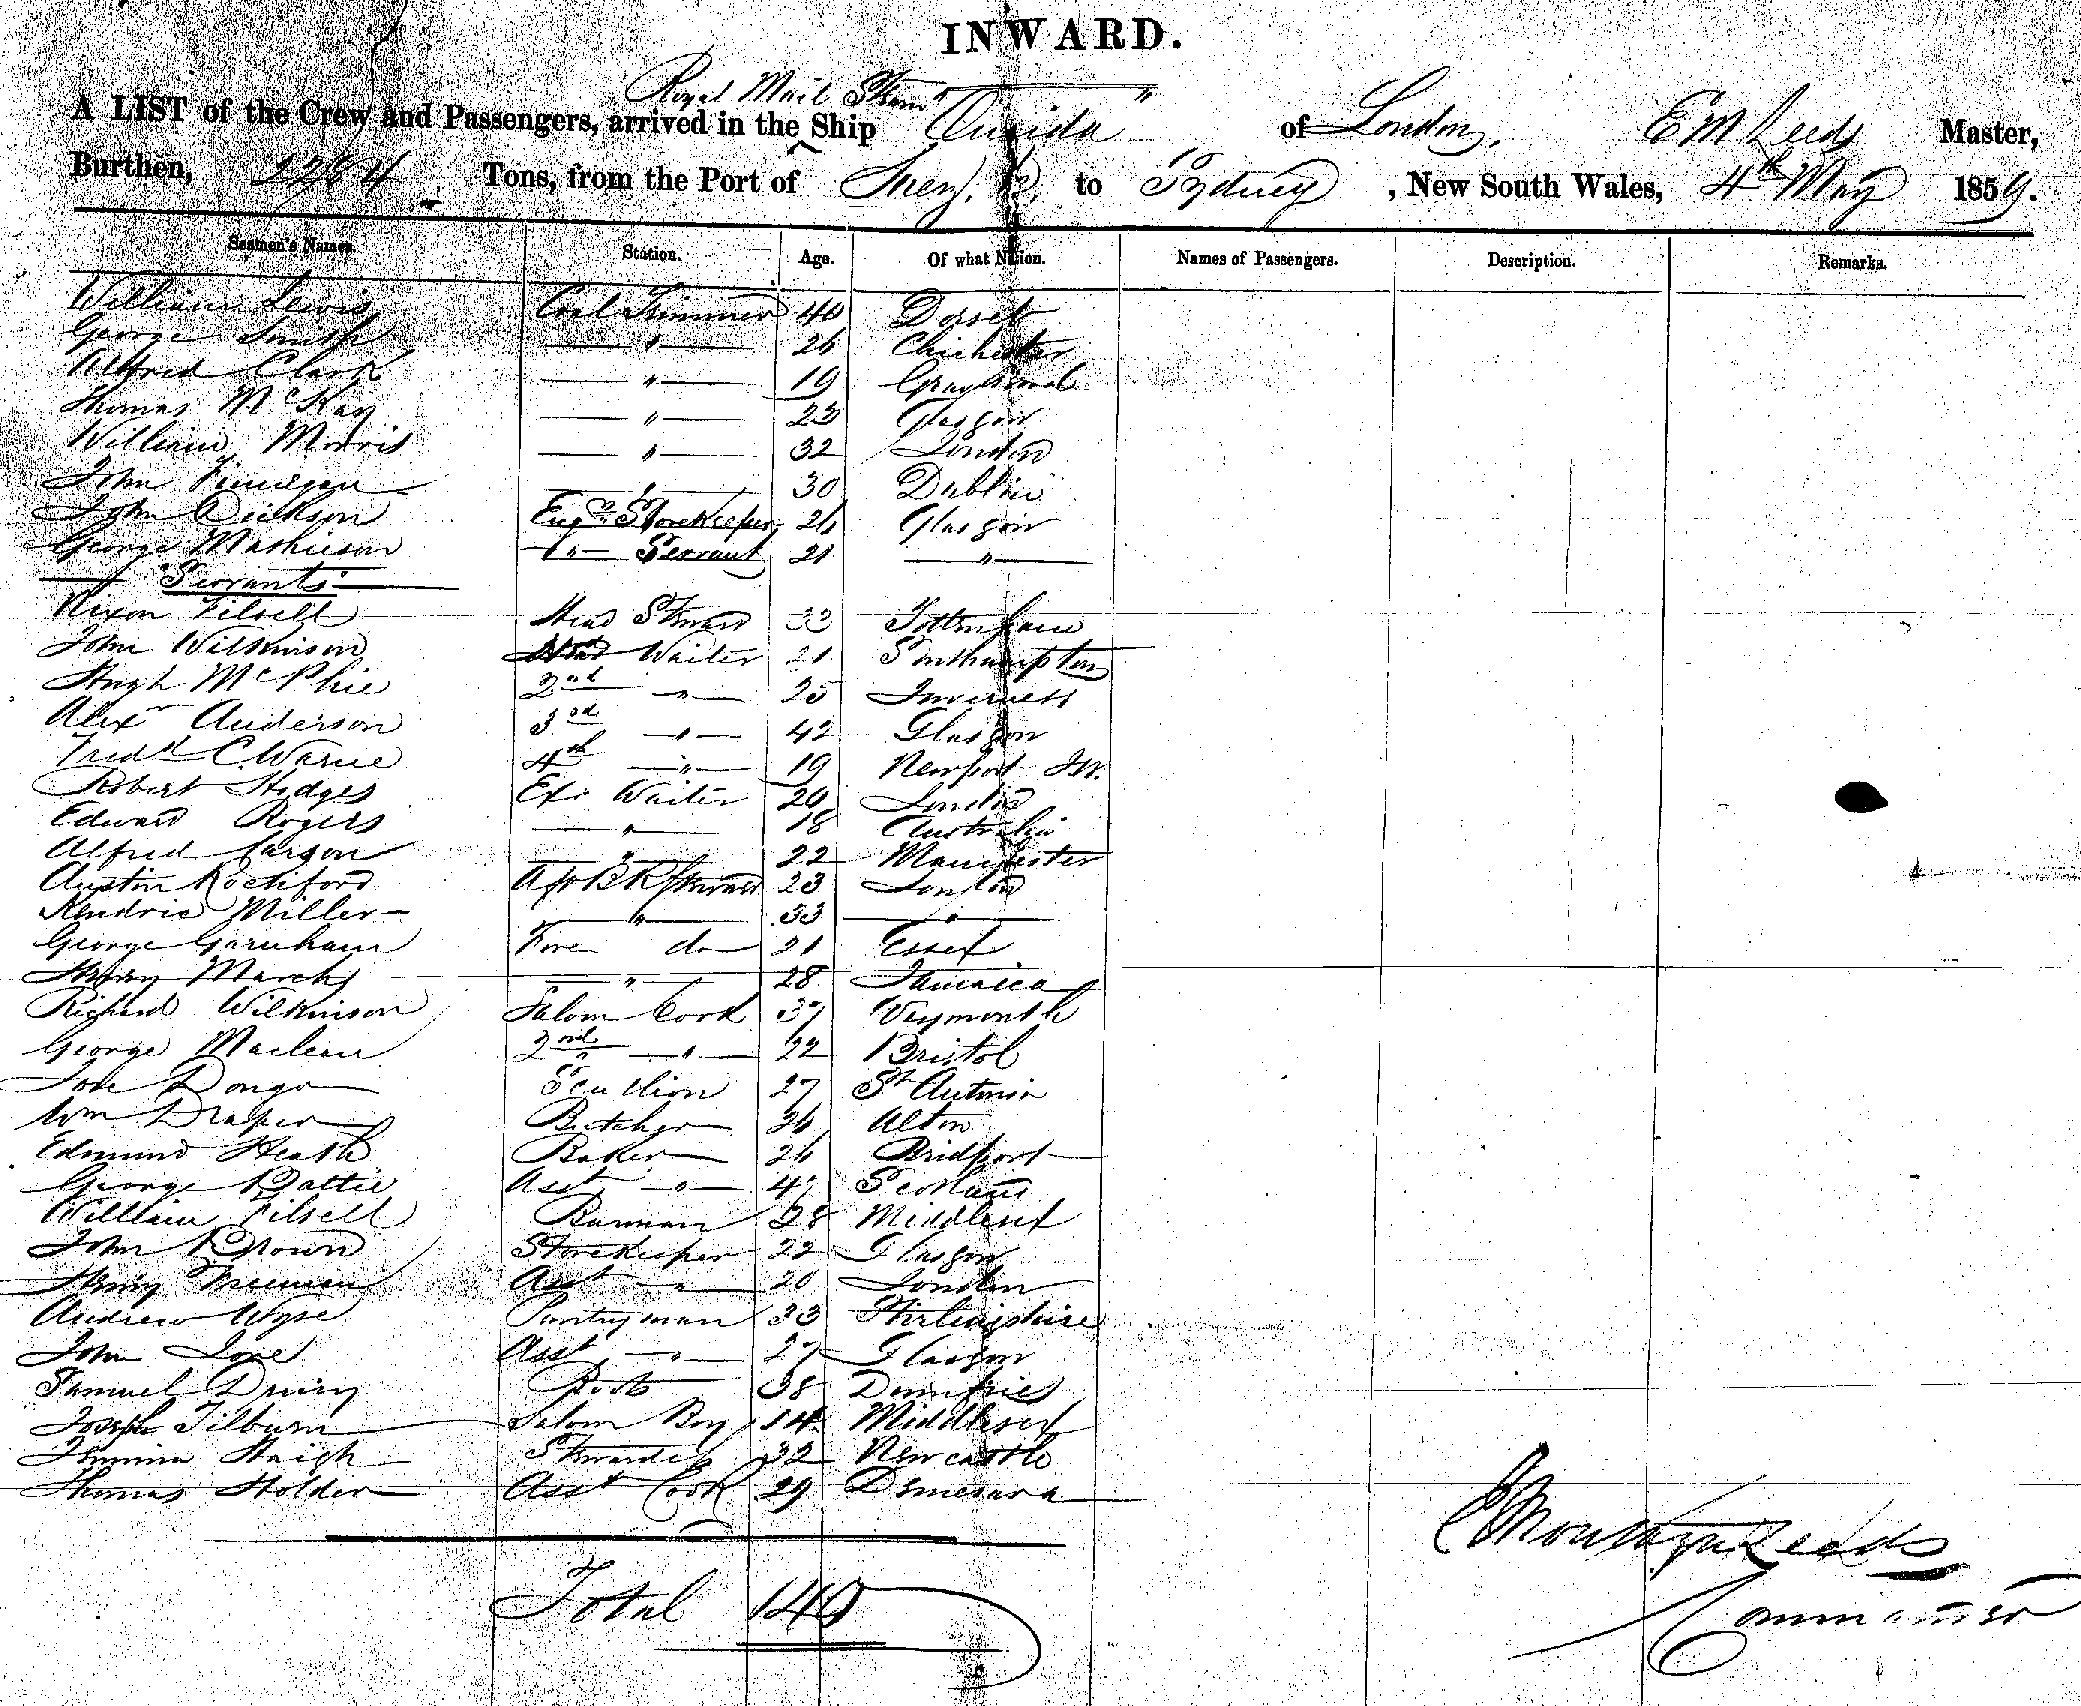 INWARD.
Royal Mail Steam " "
A LIST of the Crew and Passengers, arrived in the Ship Oneida of London, E M Leeds Master,
Burthen, 2284 Tons, from the Port of Suez to Sydney, New South Wales, 4th May 1859.
Seamen's Names. Station. Age. Of what Nation. Names of Passengers. Description. Remarks.
William Lewis Coal Trimmer 40 Dorset
George Smith " 26 Chichester
Alfred Clark " 19 Gravesend
Thomas McKay " 23 Glasgow
William Morris " 32 London
John Finnegan " 30 Dublin
John Dickson Engrs Storekeeper 24 Glasgow
George Mathieson " Servant 21 "
Servants
Nixon Filsell Head Steward 33 Tottenham
John Wilkinson Waiter 21 Southampton
Hugh McPhie 2nd " 25 Inverness
Alexr Anderson 3rd " 42 Glasgow
Fredk C. Warne 4th " 19 Newport I.W.
Robert Hodges Ex: Waiter 20 London
Edward Rogers " 18 Australia
Alfred Carson " 22 Manchester
Austin Rochford Aft B R Steward 23 London
Kendric Miller " 33 "
George Garnham Fore do 21 Essex
Henry March " 28 Jamaica
Richard Wilkinson Saloon Cook 37 Weymouth
George Maclean 2nd " 22 Bristol
Jose Dongo Scullion 27 St Antonio
Wm Draper Butcher 34 Alton
Edmund Heath Baker 24 Bridport
George Battie Asst " 47 Scotland
William Filsell Barman 28 Middlesex
John Brown Storekeeper 22 Glasgow
Henry Freeman Asst " 20 London
Andrew Wyse Pantryman 33 Stirlingshire
John Love Asst " 27 Glasgow
Samuel Druiry Boots 38 Dumfries
Joseph Tilburn Saloon Boy 14 Middlesex
Jemima Haigh Stewardess 32 Newcastle
Thomas Holder Asst Cook 29 Demerara
E Montagu Leeds
Commander
Total 140